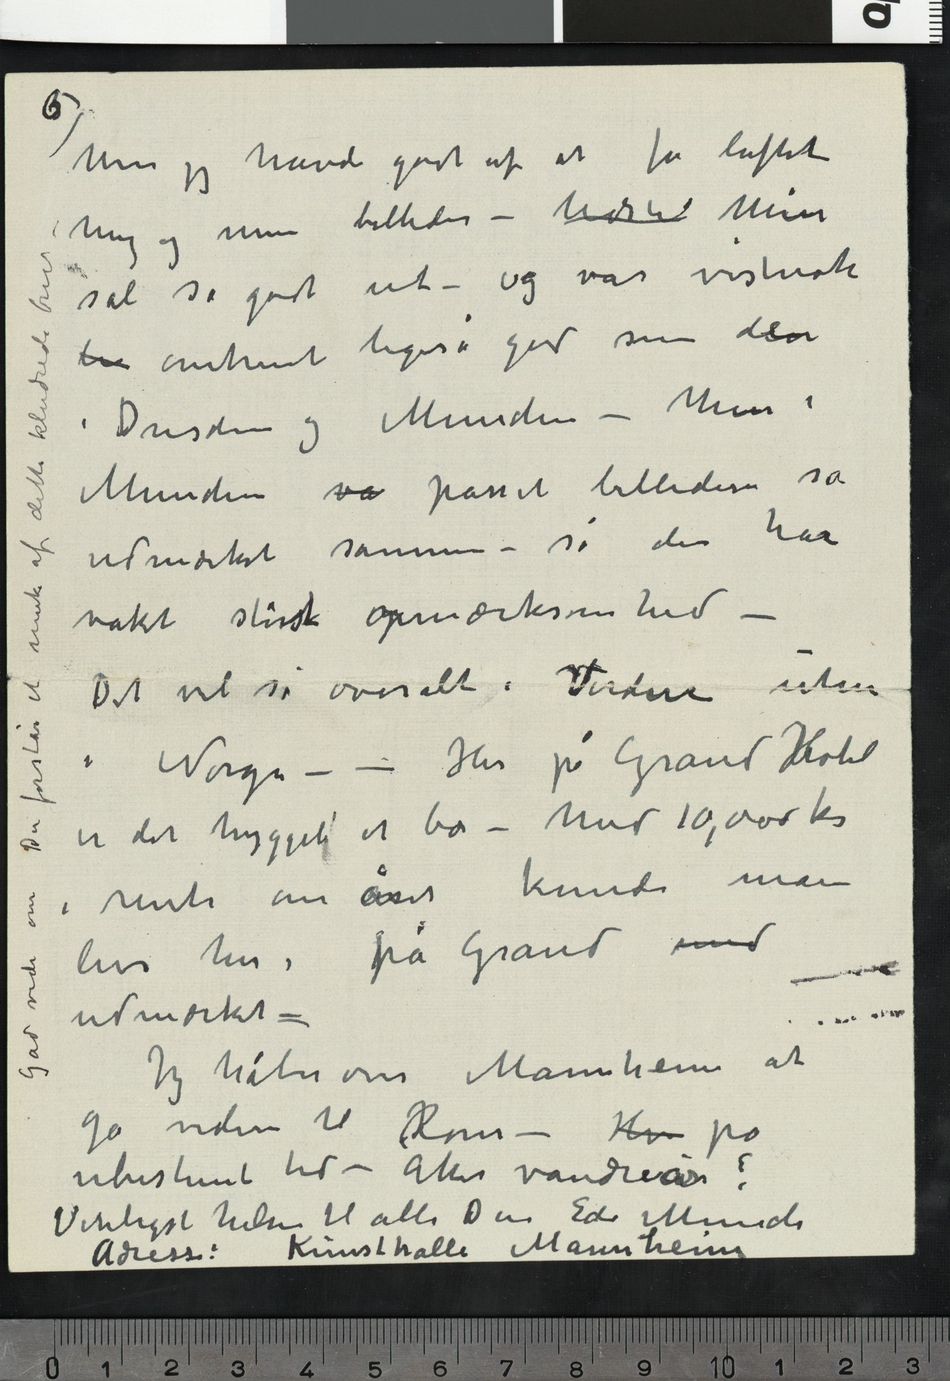 6/
Men jeg havde godt af at få luftet
mig og mine billeder – Min
sal så godt ut – og var vistnok
omtrent ligeså god som den
i Dresden og München – Men i
München va passet billederne så
udmærket sammen – så der har
vakt størst opmærksomhed –
Det vel så overalt i Verden uten
i Norge – – Her på Grand Hotel
er det hyggeli at bo – Med 10,000 kr
i rente om året kunde man
leve her i på Grand med
udmærket –
Jeg håber over Mannheim at
gå videre til Rom – på
ubestemt tid – Akers vandreår?
Venligst hilsen til alle Din Edv Munch
Adresse: Kunsthalle Mannheim
Gad vide om Du forstår et muk af dette kludrede brev
0 1 2 3 4 5 6 7 8 9 10 1 2 3